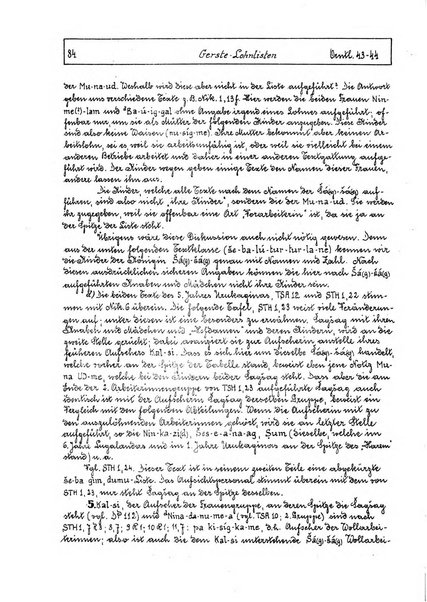 84 Gerste-Lohnlisten Oentl. 43-44
der Mu-na-ud. Weshalb wird diese aber nicht in der Liste aufgeführt? Die Antwort
geben uns verschiedene Texte z.B. Nik. 1,13 f. Hier werden die beiden Frauen Nin-
me(?)-lam und ᵈBa-ú-ig-gal ohne Angabe irgend eines Lohnes aufgeführt; of-
fenbar nur, um sie als Mütter der folgenden Kinder anzugeben. Diese Kinder
sind also keine Waisen (nu-sig-me). Ihre Mutter bekommt aber keinen Ar-
beitslohn, sei es weil sie arbeitsunfähig ist, oder weil sie vielleicht bei einem
anderen Betriebe arbeitet und daher in einer anderen Textgattung aufge-
führt wird. Der Kinder wegen geben einige Texte den Namen dieser Frauen,
andere lassen ihn aus.
Die Kinder, welche alle Texte nach dem Namen der Šá(g)-šá(g) auf-
führen, sind also nicht "ihre Kinder", sondern die der Mu-na-ud. Sie werden
ihr zugegeben, weil sie offenbar eine Art "Vorarbeiterin" ist, da sie ja an
der Spitze der Liste steht.
Übrigens wäre diese Diskussion auch nicht nötig gewesen. Denn
aus der unten folgenden Textklasse (še-ba-lú-tur-tur-la-ne) kennen wir
die Kinder der Königin Šá(g)-šá(g) genau mit Namen und Zahl. Nach
diesen ausdrücklichen sicheren Angaben können die hier nach Šá(g)-šá(g)
aufgeführten Knaben und Mädchen nicht ihre Kinder sein.
Die beiden Texte des 5. Jahres Urukaginas, TSA 12 und STH 1, 22 stim-
men mit Nik. 6 überein. Die folgende Tafel, STH 1, 23 weist viele Veränderun-
gen auf; unter diesen ist eine besonders zu erwähnen. Sagšag mit ihren
Knaben und Mädchen und "Hofdamen" und deren Kindern, wird an die
zweite Stelle gerückt; dabei avanciert sie zur Aufseherin anstelle ihres
früheren Aufsehers Kal-si. Dass es sich hier um dieselbe Šá(g)-šá(g) handelt,
welche vorher an der Spitze der Tabelle stand, beweist eben jene Notiz Mu-
na UD-me, welche bei den Kindern beider Sagšag steht. Dass aber die am
Ende der 2. Arbeiterinnengruppe von TSH 1, 23 aufgeführte Sagšag auch
identisch ist mit der Aufseherin Sagšag derselben Gruppe, beweist ein
Vergleich mit den folgenden Abteilungen. Wenn die Aufseherin mit zu
den auszulöhnenden Arbeiterinnen gehört, wird sie an letzter Stelle
aufgeführt, so die Nin-ka-zi(d), Šeš-e-a-na-ag, Šum (dieselbe, welche im
6. Jahre Lugalandas und im 1. Jahre Urukaginas an der Spitze des "Harem"
stand) u. a.
Vgl. STH 1, 24. Dieser Text ist in seinem zweiten Teile eine abgekürzte
še-ba gim, dumu-Liste. Das Aufsichtspersonal stimmt überein mit dem von
STH 1, 23, nur steht Sagšag an der Spitze derselben.
5. Kal-si, der Aufseher der Frauengruppe, an deren Spitze die Sagšag
steht (vgl. DP 112) und ᵈNina-da-nu-me-a (vgl. TSA 10; 2. Gruppe) sind nach
STH 1, 7 R 8; 8, 7; 9; 10 R 1; 11, 7: pa ki-sig-ka-me, d.h. Aufseher der Wollarbei-
terinnen; also ist auch die dem Kal-si unterstehende Šá(g)-šá(g) und ᵈBa-